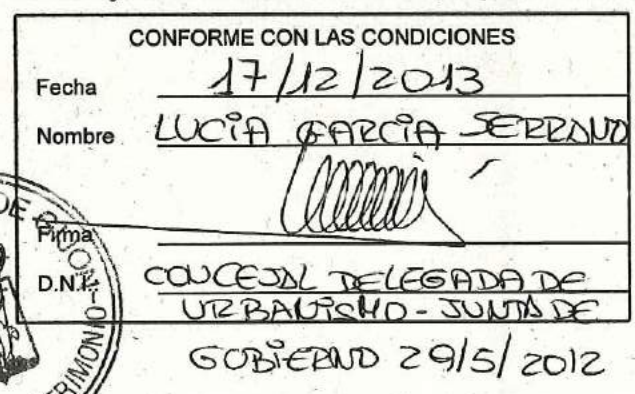 CONFORME CON LAS CONDICIONES
Fecha 17/12/2013
Nombre LUCÍA GARCÍA SERRANO
Firma
D.N.I. CONCEJAL DELEGADA DE
URBANISMO - JUNTA DE
GOBIERNO 29/5/2012
DE